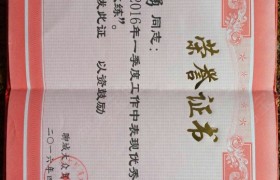 荣誉证书
勇 同志：
2016年一季度工作中表现优秀
教练”。
发此证 以资鼓励
聊城大众
二〇一六年